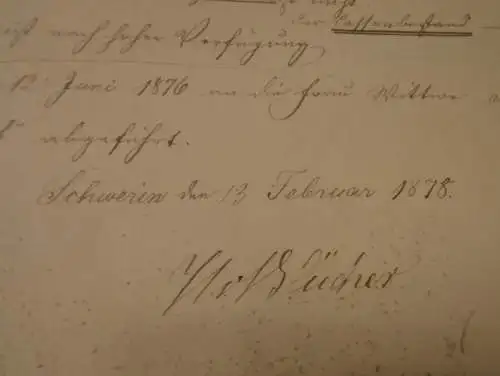 der Cassenbestand
ist nach hoher Verfügung
12 Juni 1876 an die Frau Wittwe
abgeführt.
Schwerin den 13 Februar 1878.